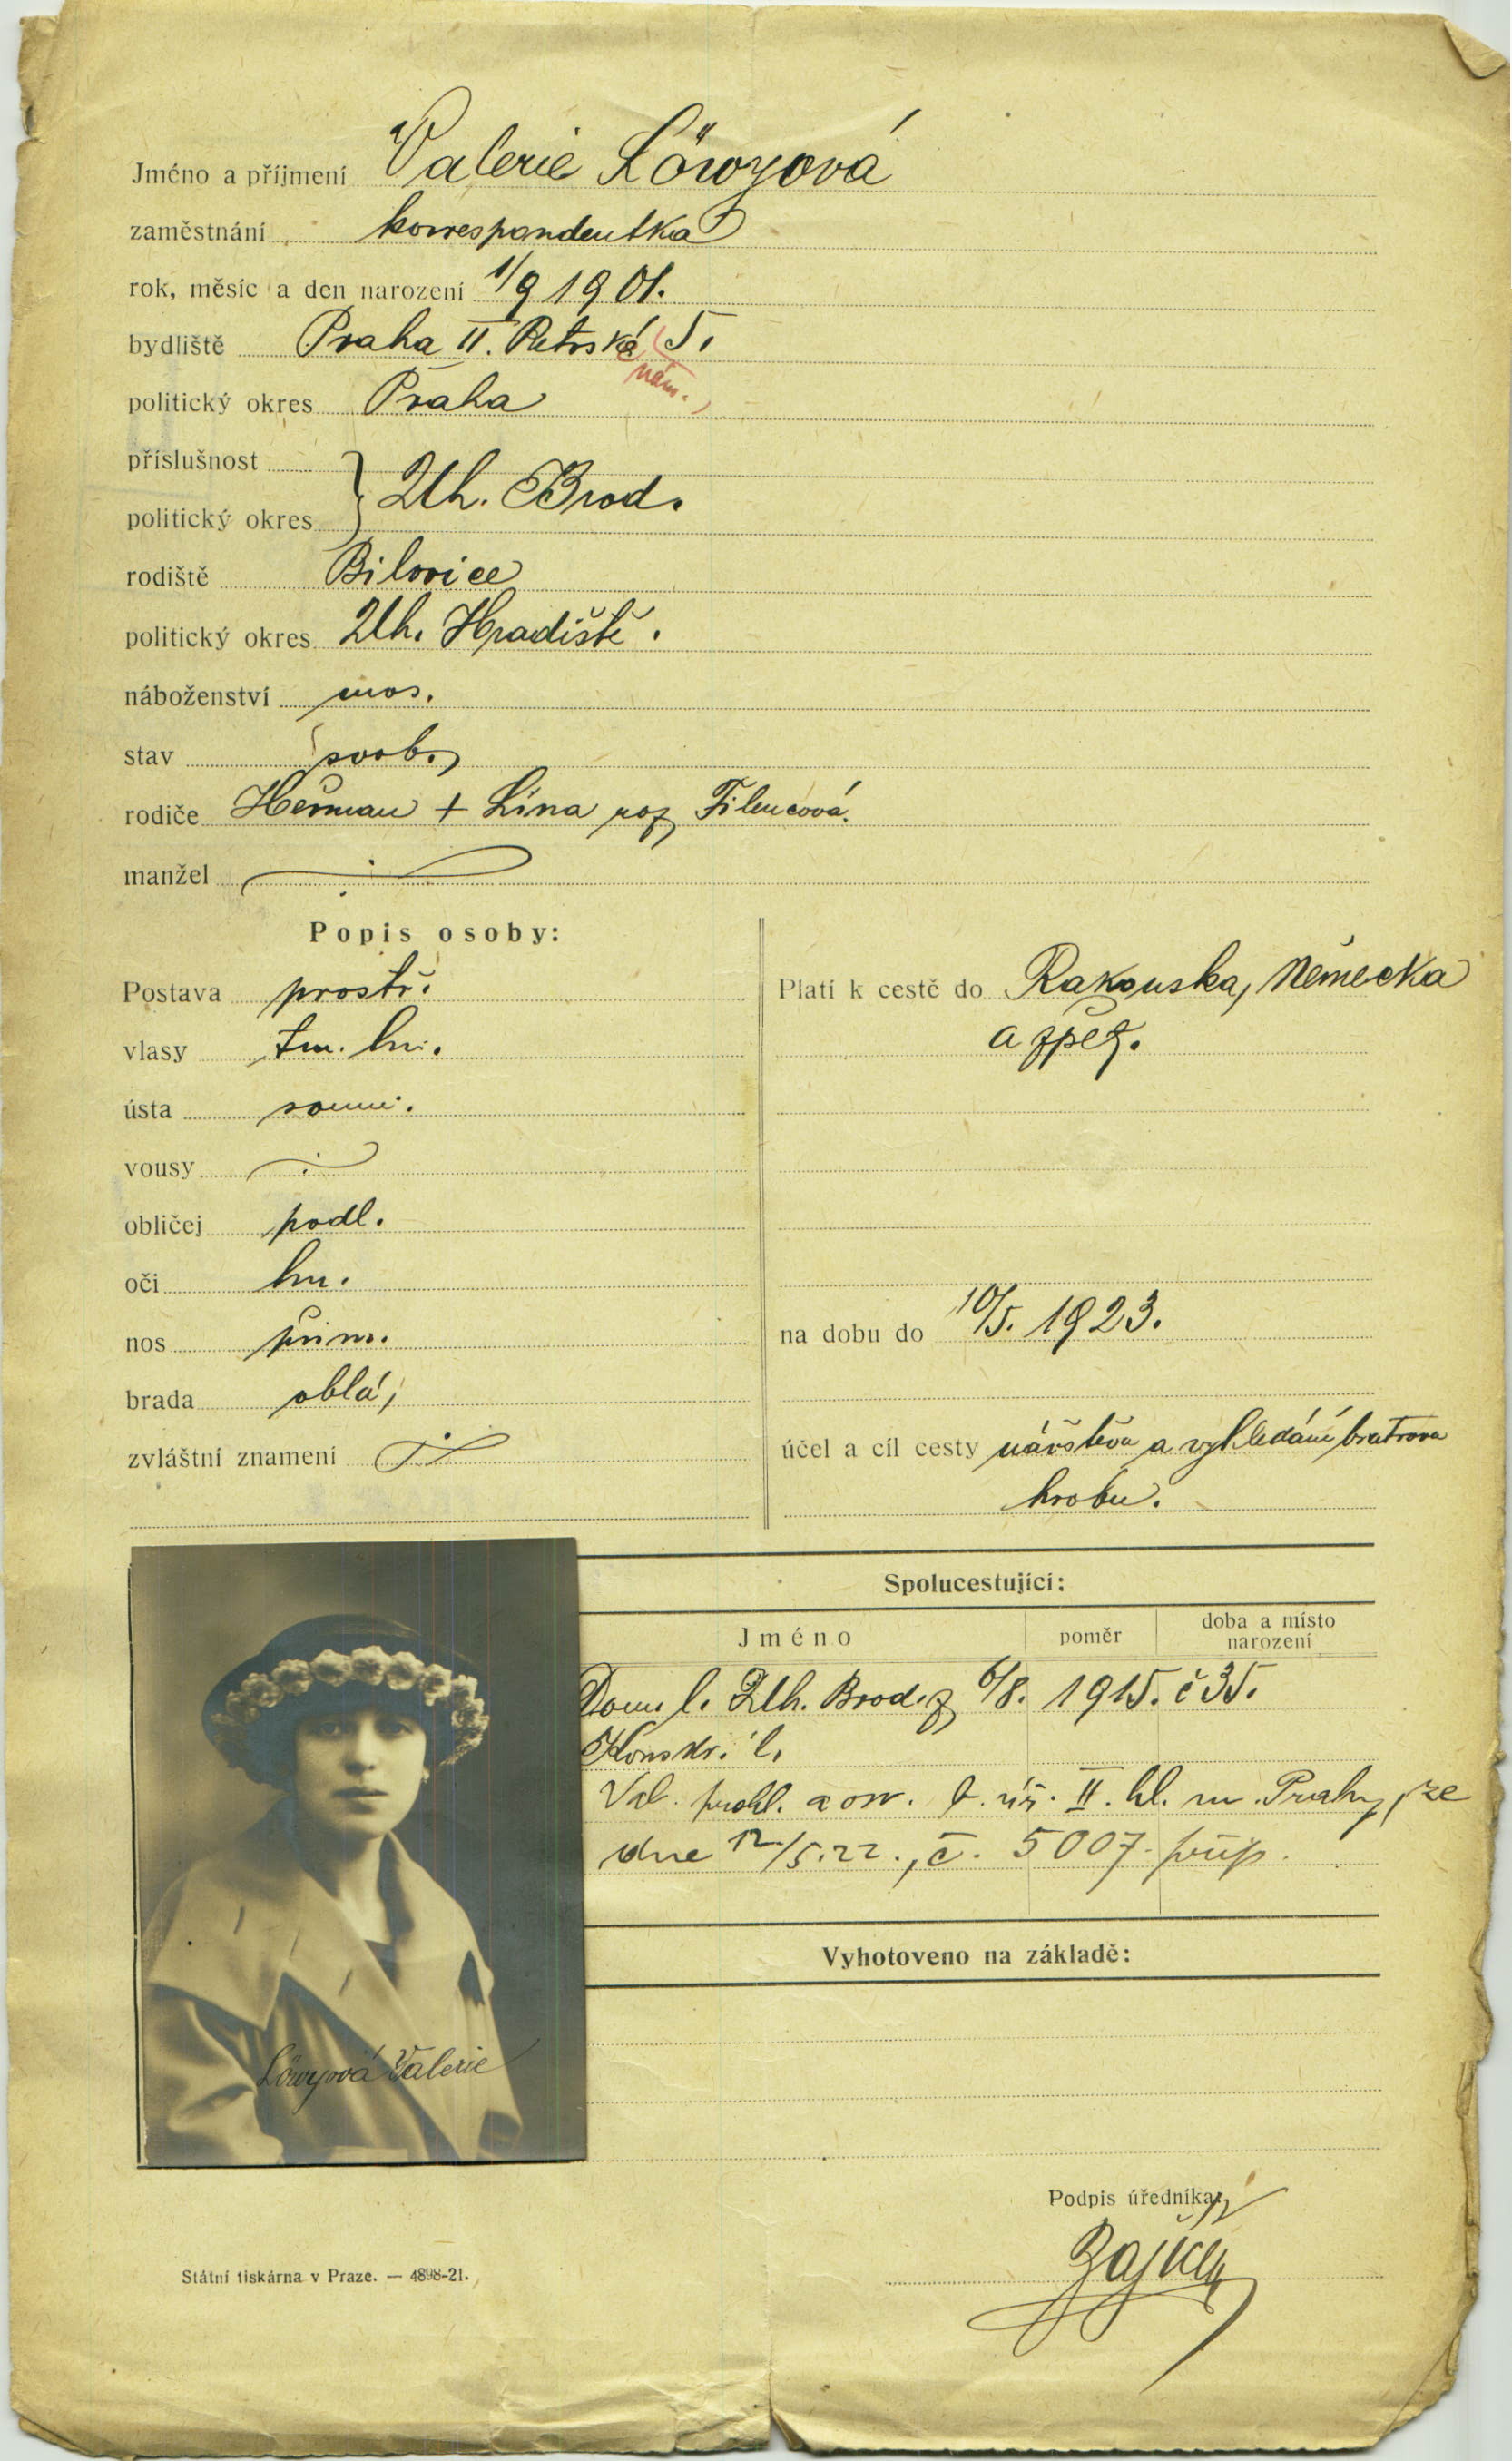 Jméno a příjmení Valerie Löwyová
zaměstnání korrespondentka
rok, měsíc a den narození 1/9 1901.
bydliště Praha II. Petrské 5.
nám.
politický okres Praha
příslušnost } Uh. Brod.
politický okres
rodiště Bilovice
politický okres Uh. Hradiště.
náboženství mos.
stav svob.
rodiče Heřman + Lina roz.
manžel
Popis osoby:
Postava prostř.
vlasy tm. hn.
ústa soum.
vousy
obličej podl.
oči hn.
nos přim.
brada oblá,
zvláštní znamení
Platí k cestě do Rakouska, Německa
a zpět.
na dobu do 10/5. 1923.
účel a cíl cesty návštěva a vyhledání bratrova
hrobu.
Spolucestující:
Jméno poměr doba a místo narození
Dom. l. Uh. Brod. z 6/8. 1915. č 35.
Konskr. l.
hl. m. Prahy, ze
dne 12/5.22., č. 5007.
Vyhotoveno na základě:
Löwyová Valerie
Podpis úředníka:
Státní tiskárna v Praze. — 4898-21.